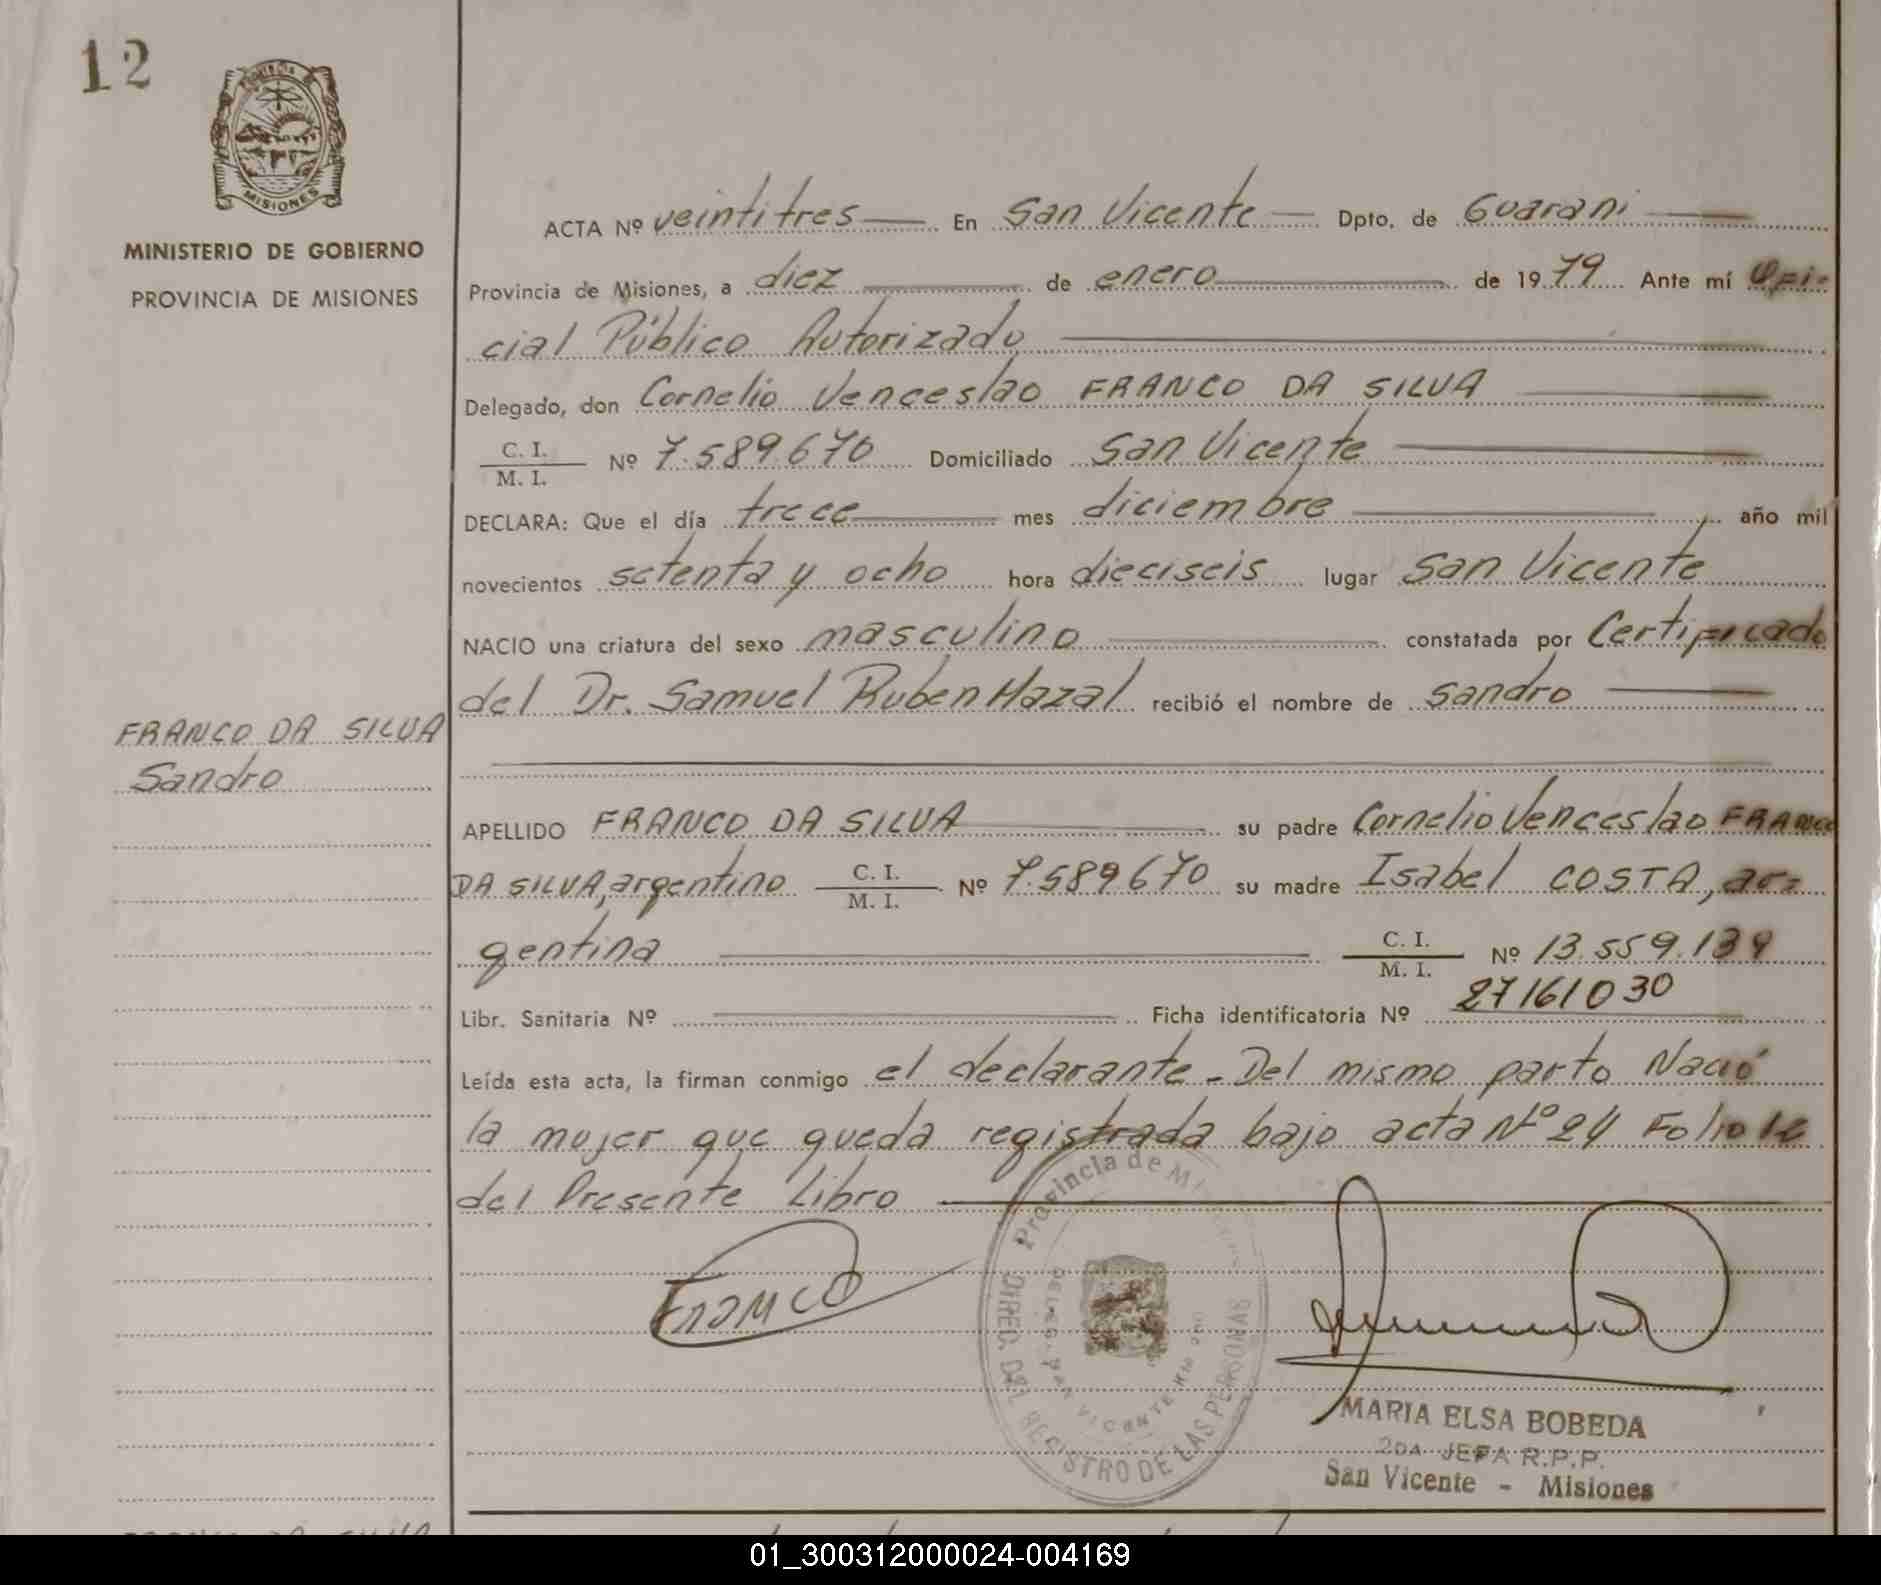 12
MISIONES
MINISTERIO DE GOBIERNO
PROVINCIA DE MISIONES
FRANCO DA SILVA
Sandro
ACTA Nº veintitres En San Vicente Dpto. de Guarani
Provincia de Misiones, a diez de enero de 1979 Ante mí Ofi-
cial Público Autorizado
Delegado, don Cornelio Venceslao FRANCO DA SILVA
C. I.
M. I. Nº 7.589.670 Domiciliado San Vicente
DECLARA: Que el día trece mes diciembre año mil
novecientos setenta y ocho hora dieciseis lugar San Vicente
NACIO una criatura del sexo masculino constatada por Certificado
del Dr. Samuel Ruben Hazal recibió el nombre de Sandro
APELLIDO FRANCO DA SILVA su padre Cornelio Venceslao FRANCO
DA SILVA, argentino C. I.
M. I. Nº 7.589670 su madre Isabel COSTA, ar=
gentina C. I.
M. I. Nº 13.559.139
Libr. Sanitaria Nº Ficha identificatoria Nº 27161030
Leída esta acta, la firman conmigo el declarante - Del mismo parto Nació
la mujer que queda registrada bajo acta Nº 24 Folio 12
del Presente Libro
Franco
Provincia de Misiones
DIREC. DEL REGISTRO DE LAS PERSONAS
MARIA ELSA BOBEDA
2DA JEFA R.P.P.
San Vicente - Misiones
01_300312000024-004169